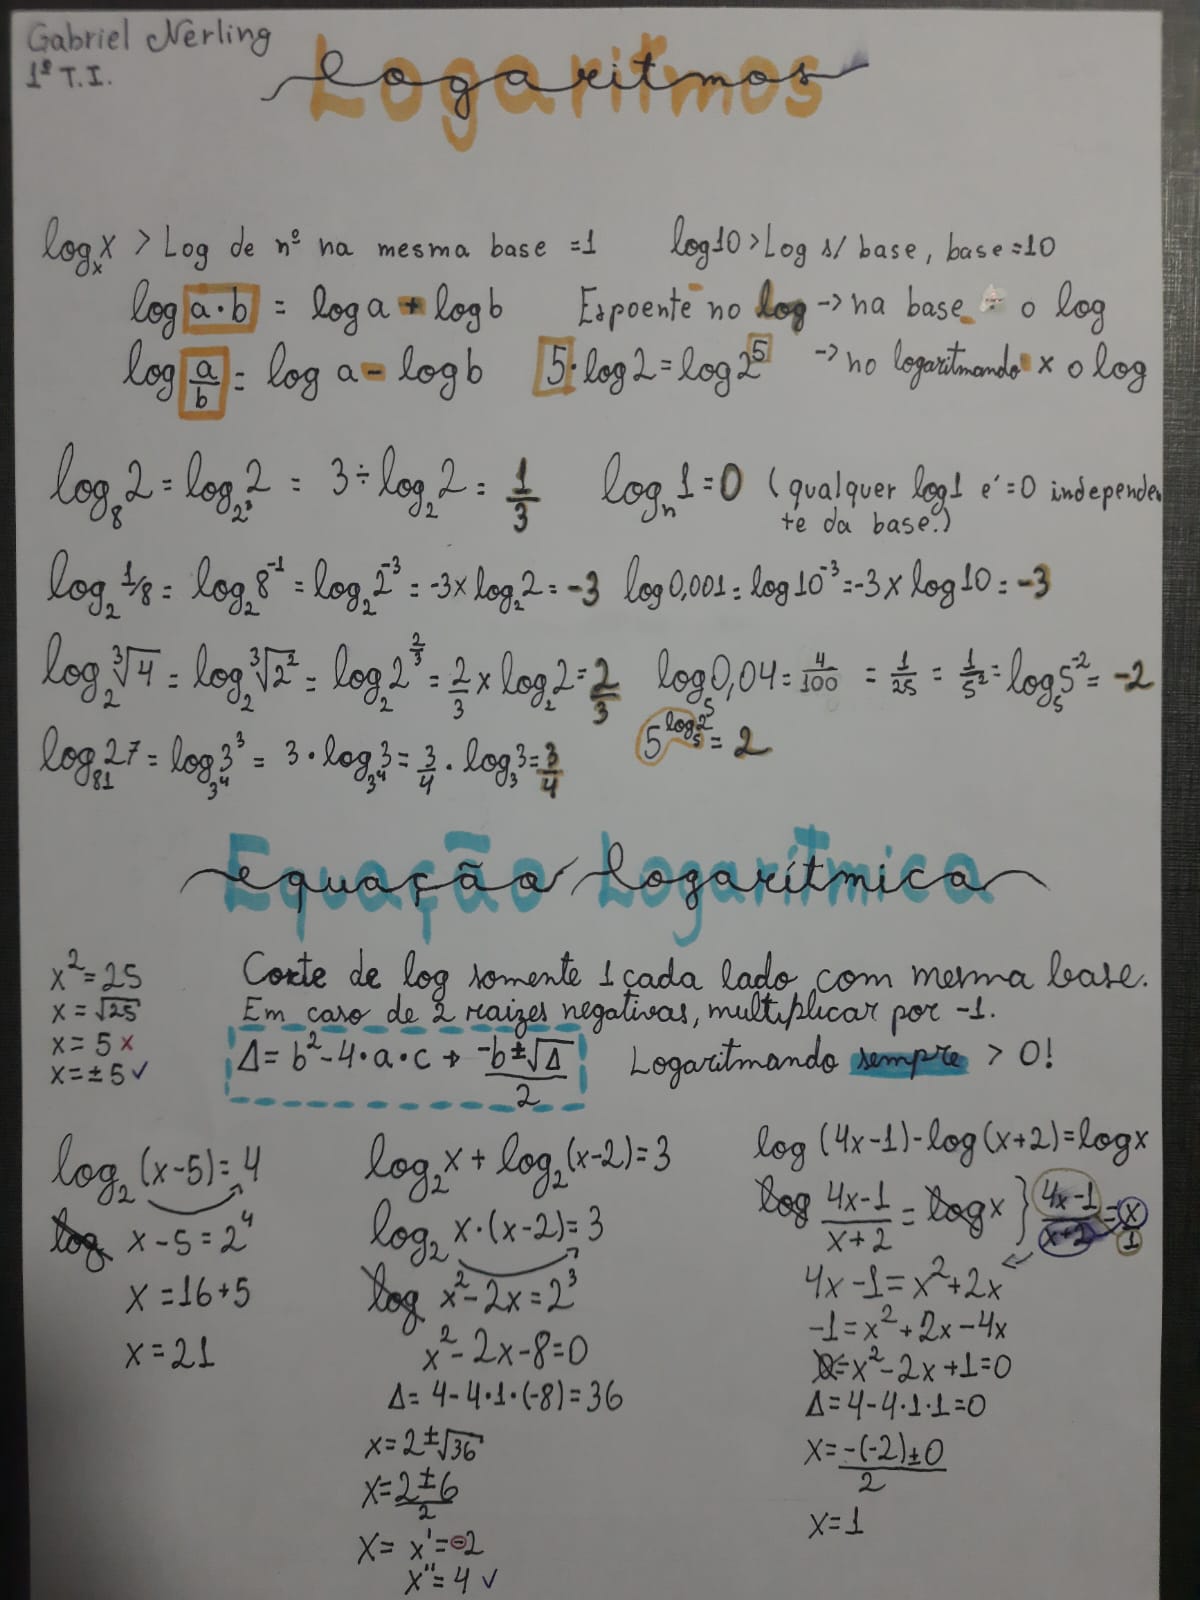 Gabriel Nerling
1º T.I.
Logaritmos
logₓx > Log de nº na mesma base =1
log10 > Log s/ base, base=10
log a·b = log a + log b
Espoente no log -> na base ÷ o log
log a/b = log a - log b
5·log2 = log2⁵
-> no logaritmando x o log
log₈2 = log₂³2 = 3÷log₂2 = 1/3
logₙ1=0 (qualquer log1 é =0 independen
te da base.)
log₂1/8 = log₂8⁻¹ = log₂2⁻³ = -3x log₂2 = -3
log0,001 = log10⁻³ = -3 x log10 = -3
log₂³√4 = log₂³√2² = log₂2^(2/3) = 2/3 x log₂2 = 2/3
log₅0,04 = 4/100 = 1/25 = 1/5² = log₅5⁻² = -2
log₈₁27 = log₃⁴3³ = 3·log₃⁴3 = 3/4·log₃3 = 3/4
5^(log₅2) = 2
Equação Logarítmica
x²=25
x=√25
x=5 x
x=±5 ✓
Corte de log somente 1 cada lado com mesma base.
Em caso de 2 raizes negativas, multiplicar por -1.
Δ= b²-4·a·c → -b±√Δ/2
Logaritmando sempre > 0!
log₂(x-5)=4
log x-5=2⁴
x=16+5
x=21
log₂x + log₂(x-2)=3
log₂ x·(x-2)=3
log x²-2x=2³
x²-2x-8=0
Δ=4-4·1·(-8)=36
x=2±√36
x=2±6/2
x= x'=-2
x''=4 ✓
log(4x-1)-log(x+2)=logx
log 4x-1/x+2 = logx } 4x-1/x+2 = x/1
4x-1=x²+2x
-1=x²+2x-4x
0=x²-2x+1=0
Δ=4-4·1·1=0
x=-(-2)±0/2
x=1